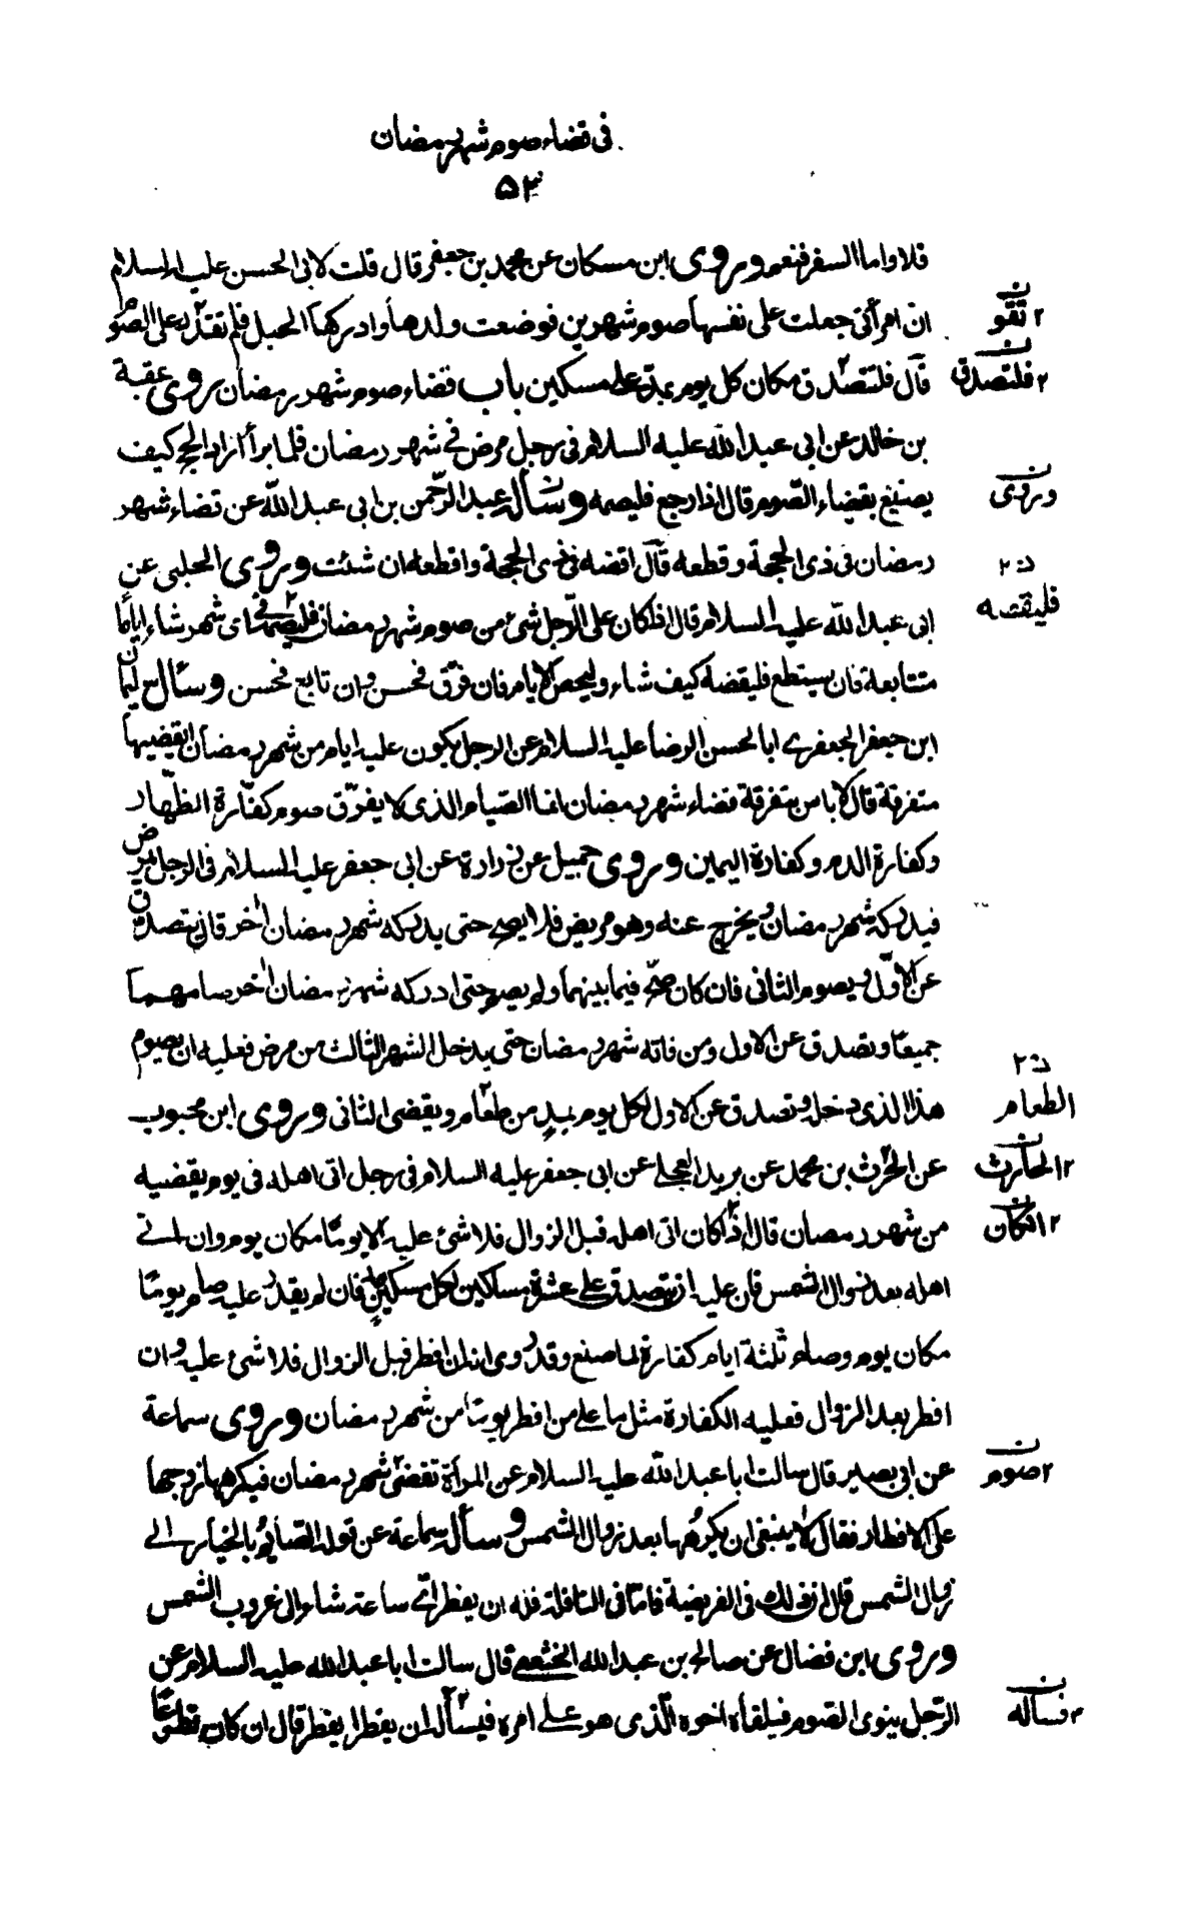 فى قضاء صوم شهر رمضان
۵۳
فلا واما السفر فنعم وروى ابن مسكان عن محمد بن جعفر قال قلت لابى الحسن عليه السلام
ان امرأتى جعلت على نفسها صوم شهرين فوضعت ولدها وادركها الحبل فلم تقدر على الصوم
٢ تقو
قال فلتتصدق مكان كل يوم بمد على مسكين باب قضاء صوم شهر رمضان روى عقبة
٢ فلتصدق
بن خالد عن ابى عبد الله عليه السلام فى رجل مرض فى شهر رمضان فلما برأ اراد الحج كيف
يصنع بقضاء الصوم قال اذا رجع فليصمه وسأل عبد الرحمن بن ابى عبد الله عن قضاء شهر
وروى
رمضان فى ذى الحجة وقطعه قال اقضه فى ذى الحجة واقطعه ان شئت وروى الحلبى عن
ابى عبد الله عليه السلام قال اذا كان على الرجل شئ من صوم شهر رمضان فليصمه فى اى شهر شاء اياما
فليقضه
متتابعة فان لم يستطع فليقضه كيف شاء وليحص الايام فان فرق فحسن وان تابع فحسن وسأل سليمان
ابن جعفر الجعفرى ابا الحسن الرضا عليه السلام عن الرجل يكون عليه ايام من شهر رمضان ايقضيها
متفرقة قال لا باس بتفرقة قضاء شهر رمضان انما الصيام الذى لا يفرق صوم كفارة الظهار
وكفارة الدم وكفارة اليمين وروى جميل عن زرارة عن ابى جعفر عليه السلام فى الرجل يمرض
فيدركه شهر رمضان ويخرج عنه وهو مريض فلا يصح حتى يدركه شهر رمضان اخر قال يتصدق
عن الاول ويصوم الثانى فان كان صح فيما بينهما ولم يصم حتى ادركه شهر رمضان اخر صامهما
جميعا وتصدق عن الاول ومن فاته شهر رمضان حتى يدخل الشهر الثالث من مرض فعليه ان يصوم
هذا الذى دخله وتصدق عن الاول لكل يوم بمد من طعام ويقضى الثانى وروى ابن محبوب
الطعام
عن الحرث بن محمد عن بريد العجلى عن ابى جعفر عليه السلام فى رجل اتى اهله فى يوم يقضيه
٢ الحارث
من شهر رمضان قال اذا كان اتى اهله قبل الزوال فلا شئ عليه الا يوما مكان يوم وان اتى
٢ ان كان
اهله بعد زوال الشمس فان عليه ان يتصدق على عشرة مساكين لكل مسكين مد فان لم يقدر عليه صام يوما
مكان يوم وصام ثلثة ايام كفارة لما صنع وقد روى انه ان افطر قبل الزوال فلا شئ عليه وان
افطر بعد الزوال فعليه الكفارة مثل ما على من افطر يوما من شهر رمضان وروى سماعة
عن ابى بصير قال سالت ابا عبد الله عليه السلام عن المرأة تقضى شهر رمضان فيكرهها زوجها
٢ صوم
على الافطار فقال لا ينبغى ان يكرهها بعد زوال الشمس وسأل سماعة عن قوله الصائم بالخيار الى
زوال الشمس قال ان ذلك فى الفريضة فاما فى النافلة فله ان يفطر اى ساعة شاء الى غروب الشمس
وروى ابن فضال عن صالح بن عبد الله الخثعمى قال سالت ابا عبد الله عليه السلام عن
الرجل ينوى الصوم فيلقاه اخوه الذى هو على امره فيسأله ان يفطر ايفطر قال ان كان تطوعا
٢ فسأله